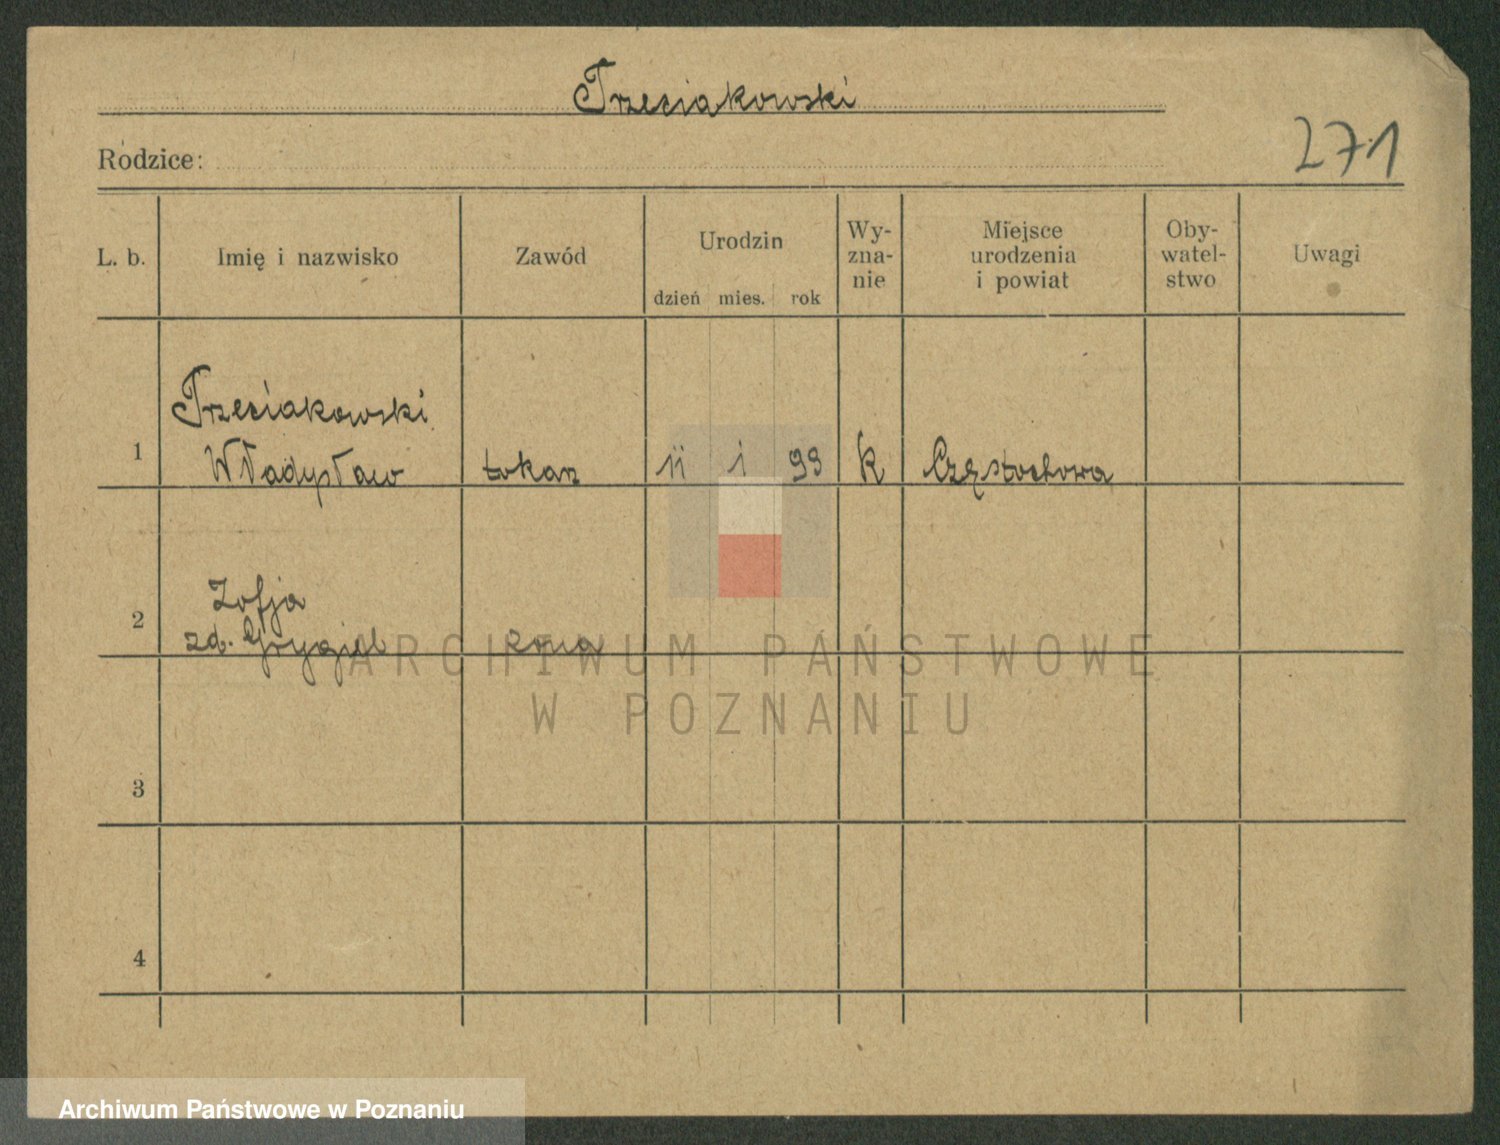 Trzeciakowski
Rodzice:
271
L. b.
Imię i nazwisko
Zawód
Urodzin
dzień mies. rok
Wy-
zna-
nie
Miejsce
urodzenia
i powiat
Oby-
watel-
stwo
Uwagi
Trzeciakowski
1 Władysław tokarz 11 1 99 k Częstochowa
Zofja
2 zd. Grygiel żona
3
4
ARCHIWUM PAŃSTWOWE
W POZNANIU
Archiwum Państwowe w Poznaniu